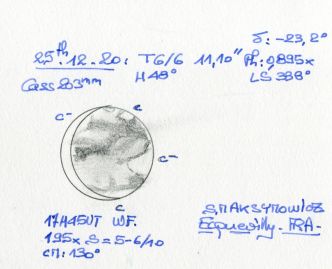 δ: -23,2°
25th.12.20: T6/6 11,10" Ph: 0,895x
Cass 203mm H48° LS 338°
C
C-
C-
C
17H45UT WF.
195x S=5-6/10
CM: 130°
S.MAKSYMOWICZ
Ecquevilly. FRA.